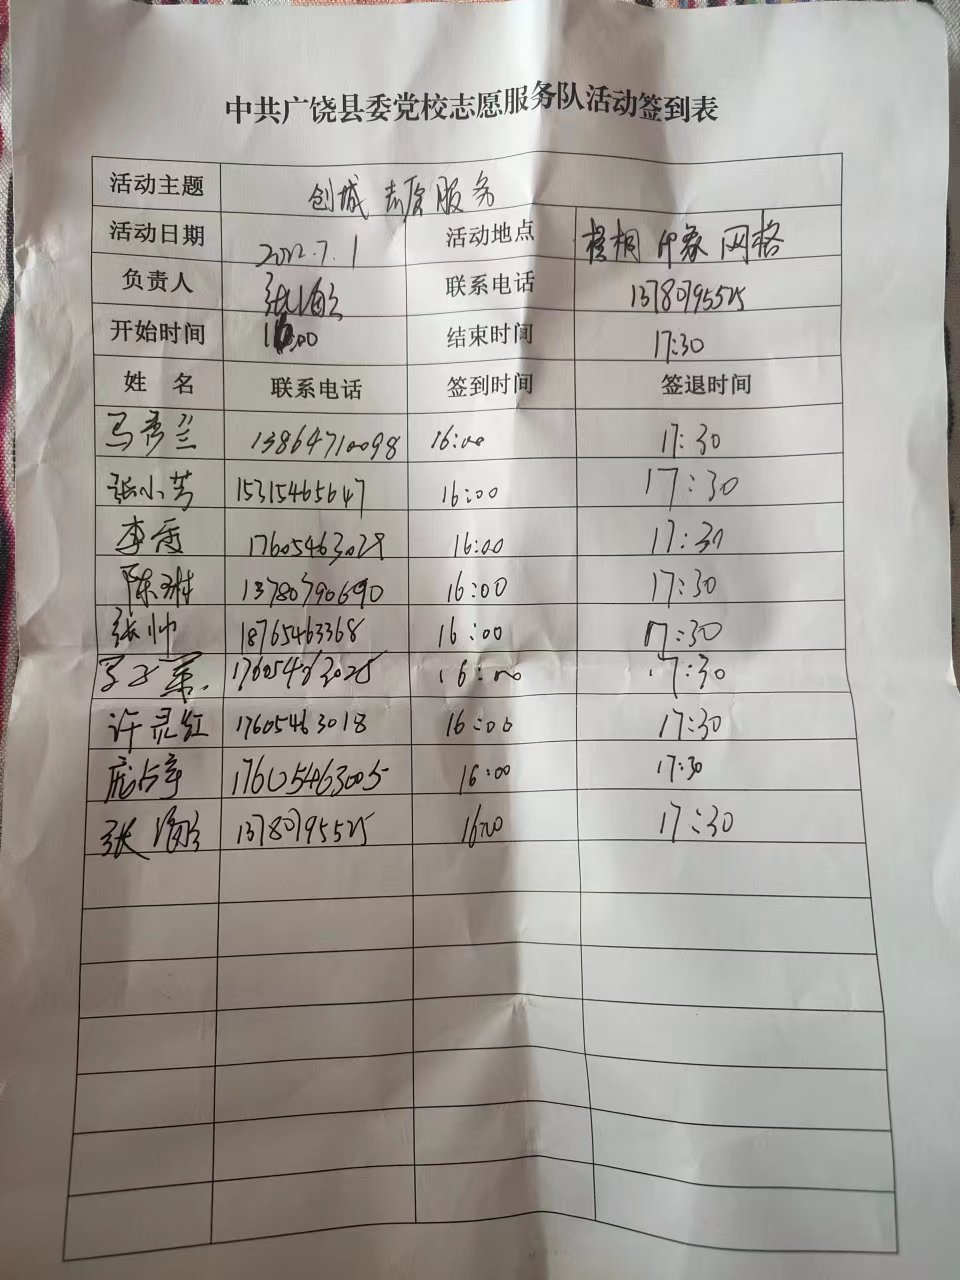 中共广饶县委党校志愿服务队活动签到表
活动主题 创城志愿服务
活动日期 2022.7.1 活动地点 梧桐印象网格
负责人 张 联系电话 13780795525
开始时间 16:00 结束时间 17:30
姓 名 联系电话 签到时间 签退时间
马秀兰 13864710098 16:00 17:30
张小芳 15315465647 16:00 17:30
李 17605463029 16:00 17:30
陈琳 13780790690 16:00 17:30
张帅 18765463368 16:00 17:30
17605463025 16:00 17:30
许灵红 17605463018 16:00 17:30
庞占 17605463005 16:00 17:30
张 13780795525 16:00 17:30